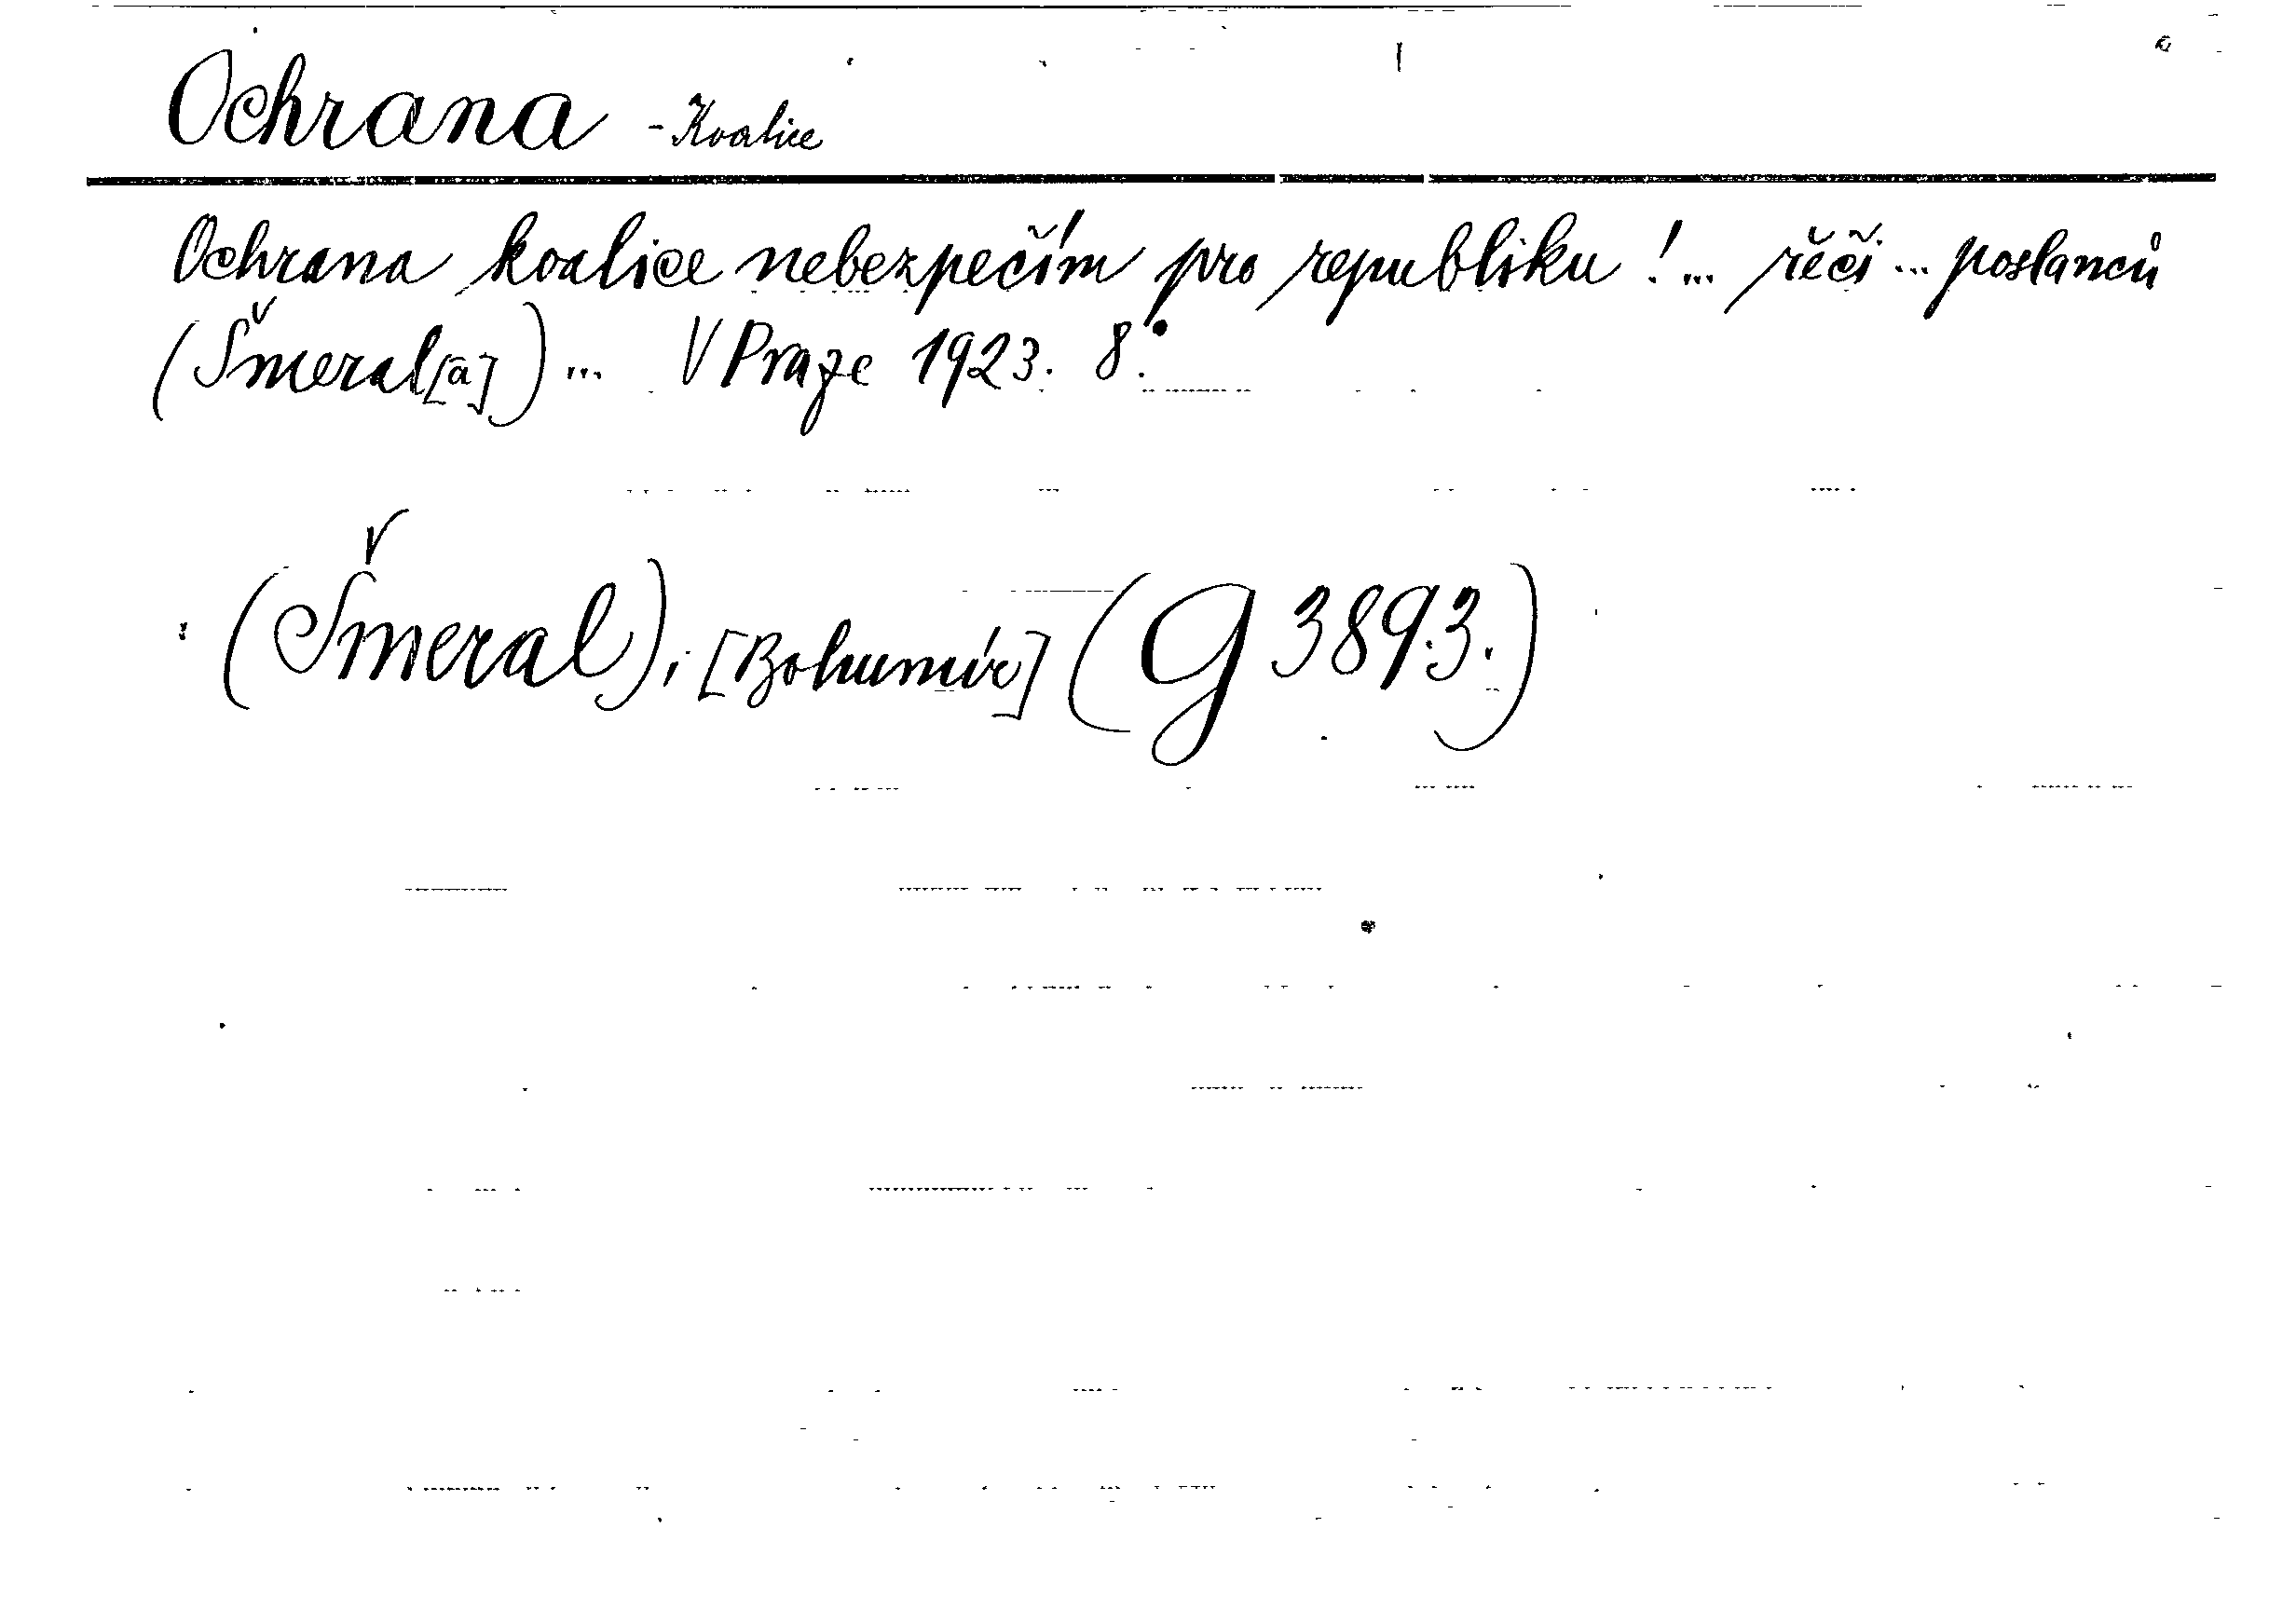 Ochrana - Koalice
Ochrana koalice nebezpečím pro republiku!... řěči... poslanců
(Šmeral[a])... V Praze 1923. 8°.
(Šmeral), [Bohumír] (G 3893.)